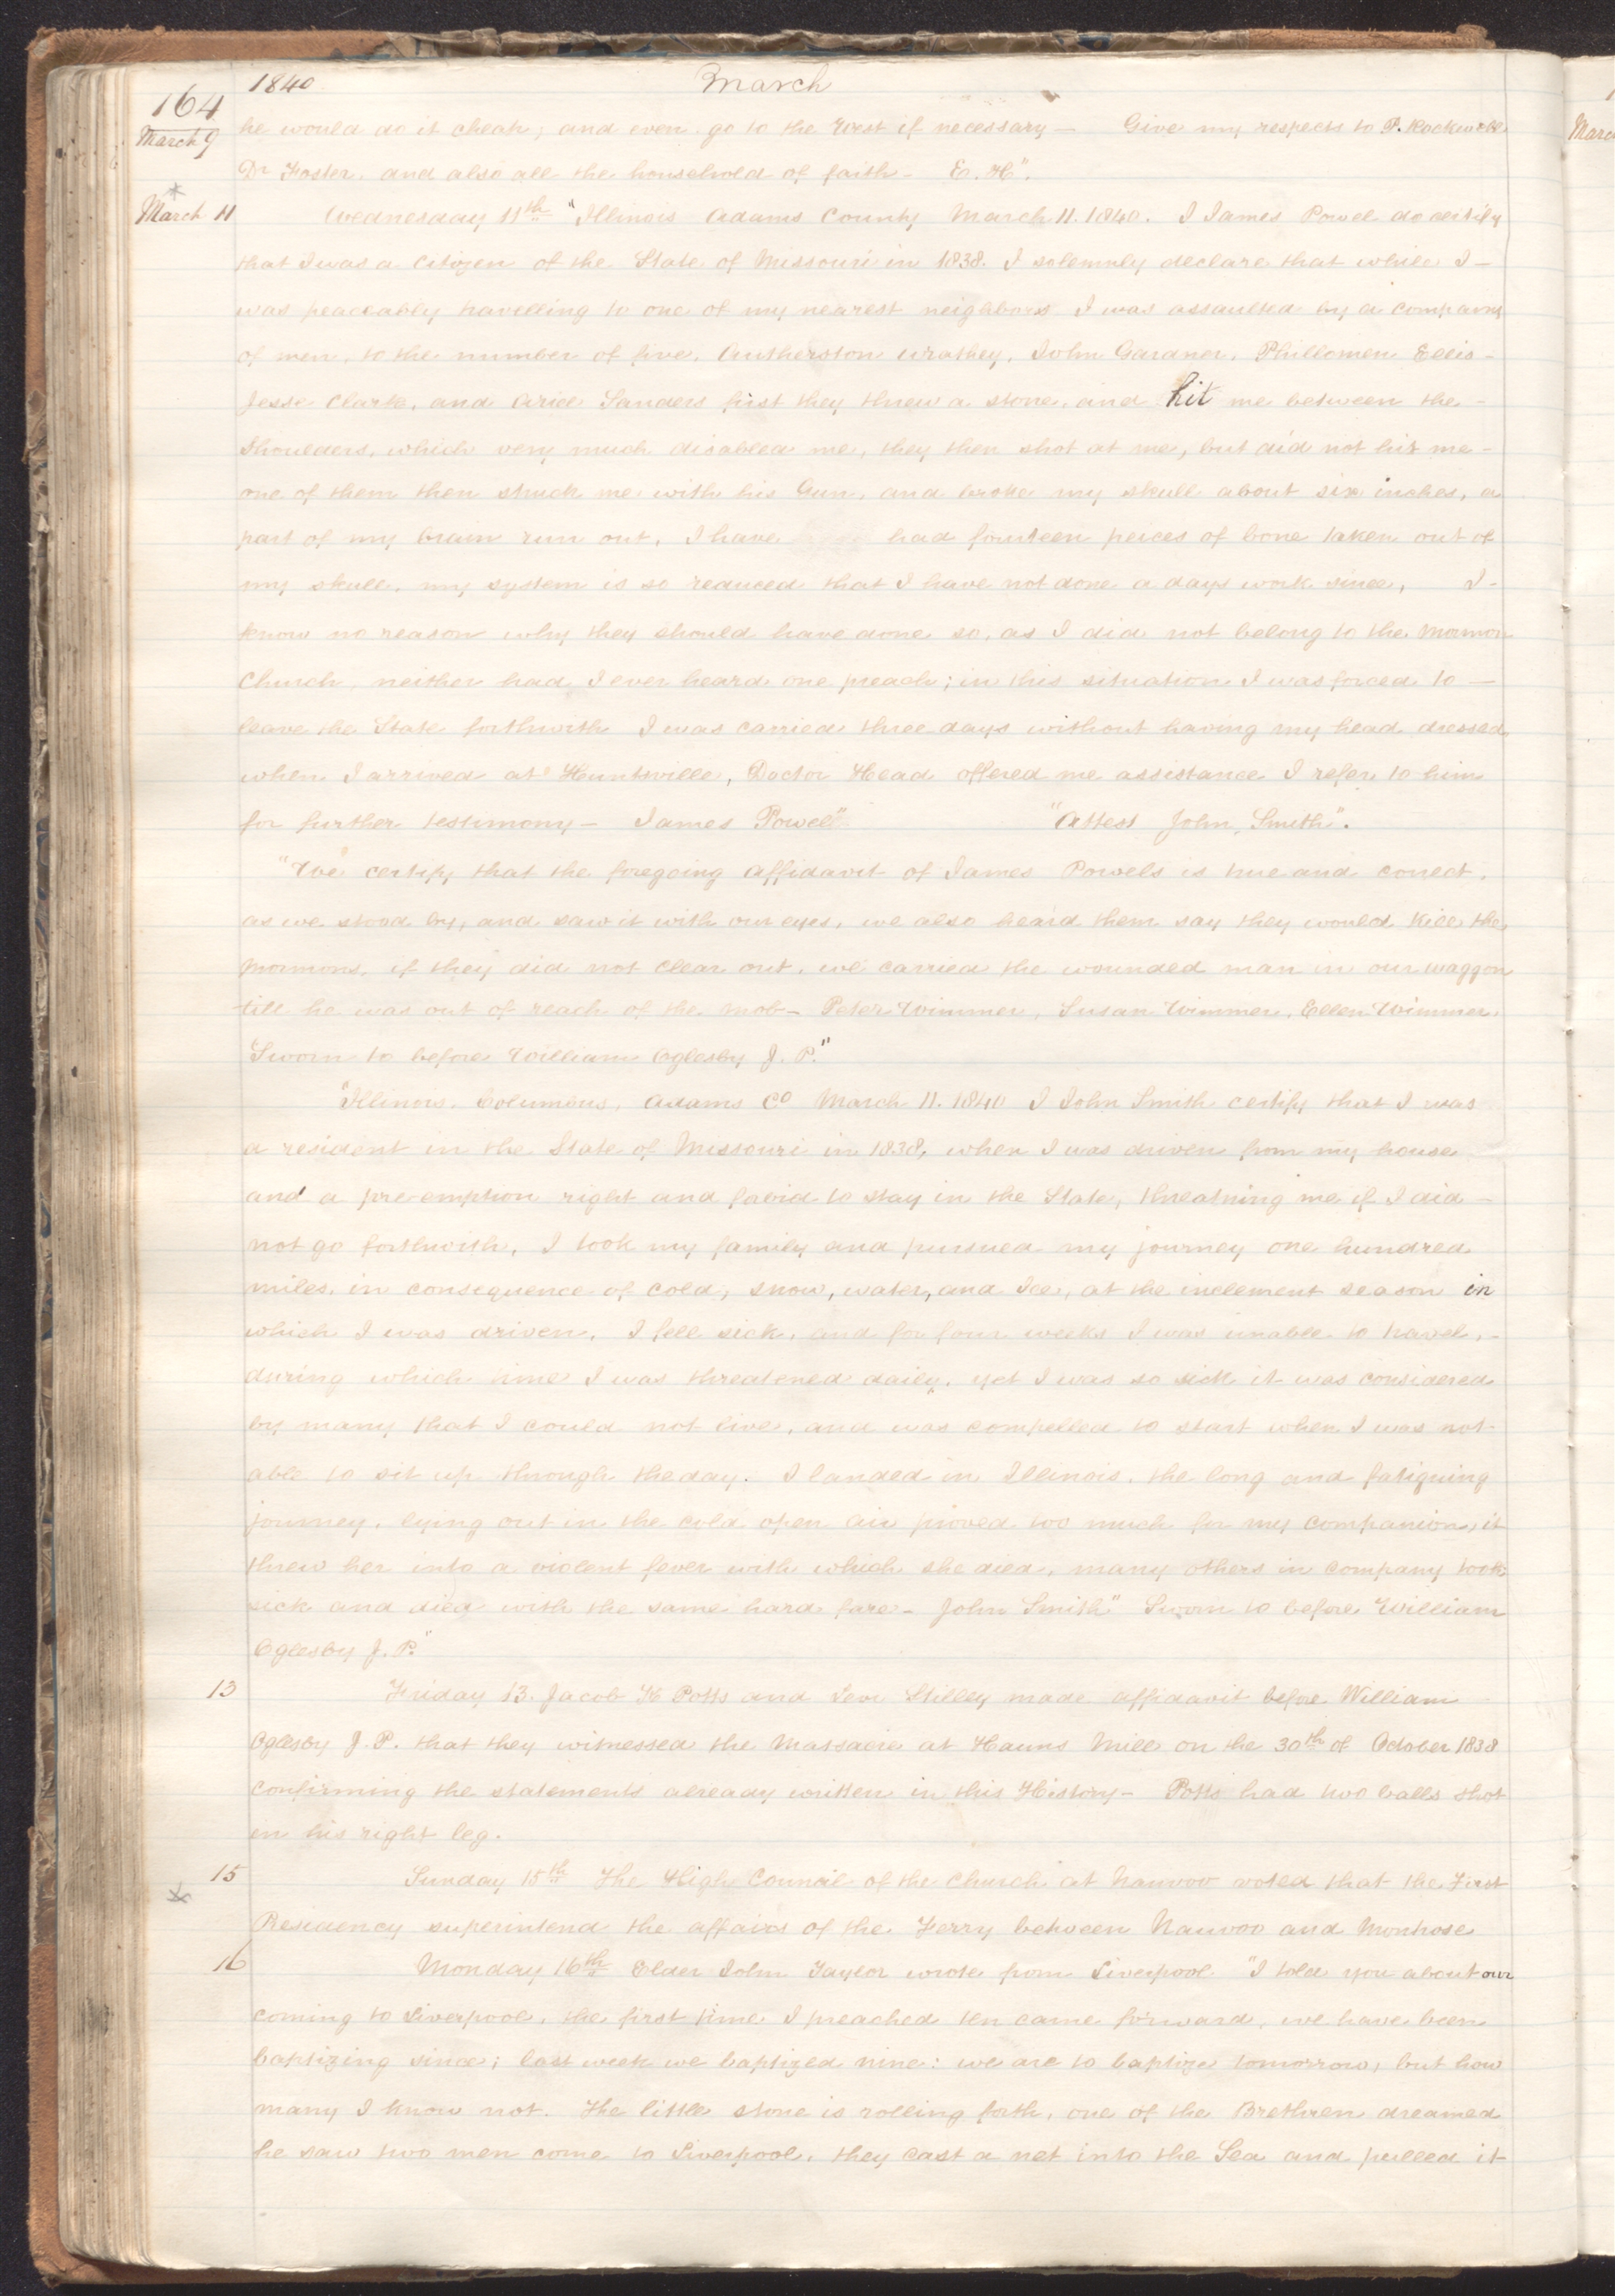 164
1840
March
March 9
he would do it cheap, and even go to the West if necessary — Give my respects to P. Rockwell
Dr Foster, and also all the household of faith — E. H".
*
March 11
Wednesday 11th "Illinois Adams County March 11. 1840. I James Powel do certify
that I was a citizen of the State of Missouri in 1838. I solemnly declare that while I –
was peaceably travelling to one of my nearest neighbors I was assaulted by a company
of men, to the number of five, Autherston Wrathey, John Gardner, Phillomen Ellis –
Jesse Clark, and Ariel Sanders first they threw a stone, and hit me between the –
Shoulders, which very much disabled me, they then shot at me, but did not hit me –
one of them then struck me with his Gun, and broke my skull about six inches, a
part of my brain run out, I have had fourteen peices of bone taken out of
my skull, my system is so reduced that I have not done a days work since, I –
know no reason why they should have done so, as I did not belong to the Mormon
Church, neither had I ever heard one preach; in this situation I was forced to —
leave the State forthwith I was carried three days without having my head dressed,
when I arrived at Huntsville, Doctor Head offered me assistance I refer to him
for further testimony — James Powel" "Attest John Smith".
"We certify that the foregoing affidavit of James Powels is true and correct,
as we stood by, and saw it with our eyes, we also heard them say they would kill the
Mormons, if they did not clear out, we carried the wounded man in our waggon
till he was out of reach of the mob — Peter Wimmer, Susan Wimmer, Ellen Wimmer.
Sworn to before William Oglesby J. P."
"Illinois, Columbus, Adams Co March 11. 1840 I John Smith certify that I was
a resident in the State of Missouri in 1838, when I was driven from my house
and a pre-emption right and forbid to stay in the State, threatning me if I did —
not go forthwith, I took my family and pursued my journey one hundred
miles, in consequence of cold, snow, water, and Ice, at the inclement season in
which I was driven, I fell sick, and for four weeks I was unable to travel, –
during which time I was threatened daily, yet I was so sick it was considered
by many that I could not live, and was compelled to start when I was not
able to sit up through the day. I landed in Illinois, the long and fatiguing
journey, lying out in the cold open air proved too much for my companion, it
threw her into a violent fever with which she died, many others in company took
sick and died with the same hard fare — John Smith" Sworn to before William
Oglesby J. P."
13
Friday 13. Jacob K Potts and Levi Stilley made affidavit before William
Oglesby J. P. that they witnessed the Massacre at Hauns Mill on the 30th of October 1838
confirming the statements already written in this History — Potts had two balls shot
in his right leg.
15
Sunday 15th The High Council of the Church at Nauvoo voted that the First
*
Presidency superintend the affairs of the Ferry between Nauvoo and Montrose
16
Monday 16th Elder John Taylor wrote from Liverpool. "I told you about our
coming to Liverpool, the first time I preached ten came forward, we have been
baptizing since; last week we baptized nine: we are to baptize tomorrow, but how
many I know not. The little stone is rolling forth, one of the Brethren dreamed
he saw two men come to Liverpool, they cast a net into the Sea and pulled it